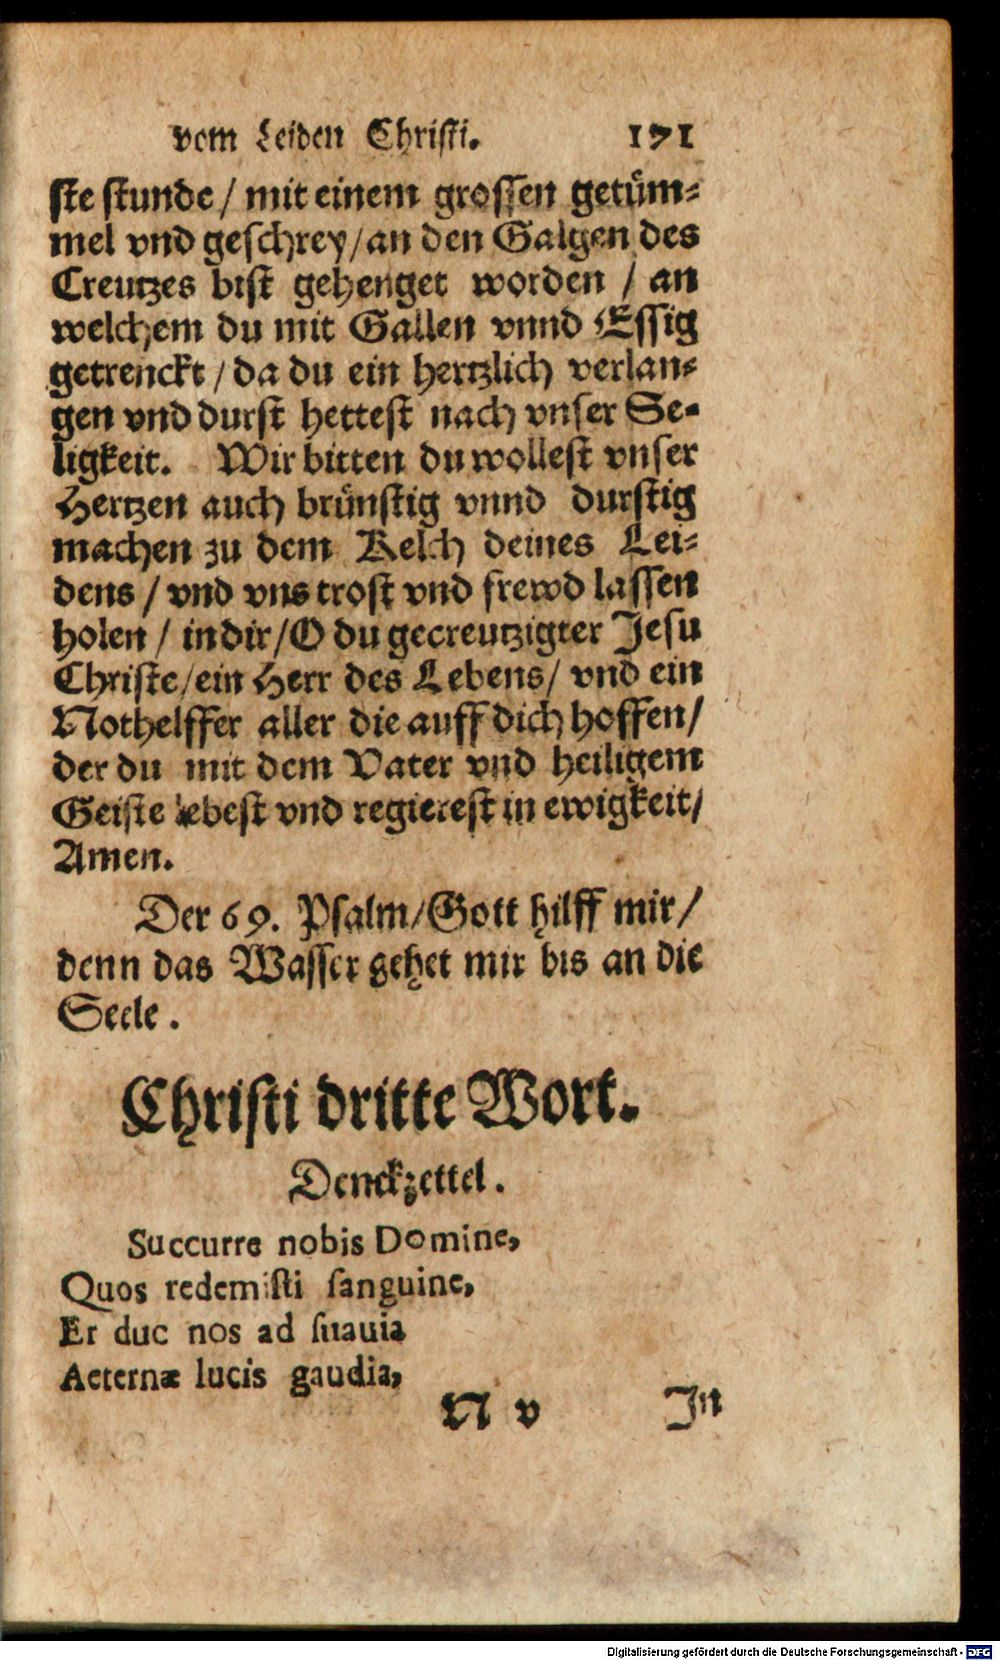 vom Leiden Christi. 171
ſte ſtunde / mit einem groſſen getüm⸗
mel vnd geſchrey / an den Galgen des
Creutzes biſt gehenget worden / an
welchem du mit Gallen vnnd Eſſig
getrenckt / da du ein hertzlich verlan⸗
gen vnd durſt hetteſt nach vnſer Se⸗
ligkeit. Wir bitten du wolleſt vnſer
Hertzen auch brünſtig vnnd durſtig
machen zu dem Kelch deines Lei⸗
dens / vnd vns troſt vnd frewd laſſen
holen / in dir / O du gecreutzigter Jeſu
Chriſte / ein Herr des Lebens / vnd ein
Nothelffer aller die auff dich hoffen /
der du mit dem Vater vnd heiligem
Geiſte lebeſt vnd regiereſt in ewigkeit /
Amen.
Der 69. Pſalm / Gott hilff mir /
denn das Waſſer gehet mir bis an die
Seele.
Chriſti dritte Wort.
Denckzettel.
Succurre nobis Domine,
Quos redemiſti ſanguine,
Et duc nos ad ſuauia
Aeternæ lucis gaudia,
N v In
Digitalisierung gefördert durch die Deutsche Forschungsgemeinschaft - DFG